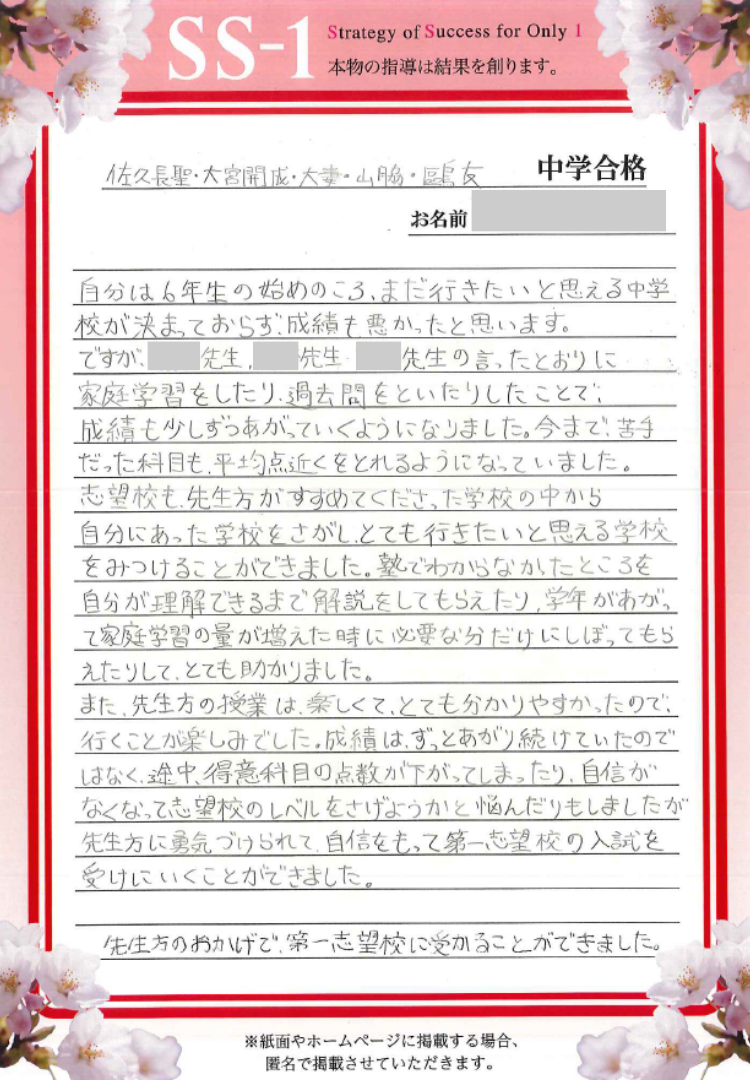 SS-1
Strategy of Success for Only 1
本物の指導は結果を創ります。
佐久長聖・大宮開成・大妻・山脇・鷗友 中学合格
お名前
自分は6年生の始めのころ、まだ行きたいと思える中学
校が決まっておらず、成績も悪かったと思います。
ですが、先生、先生、先生の言ったとおりに
家庭学習をしたり、過去問をといたりしたことで、
成績も少しずつあがっていくようになりました。今まで、苦手
だった科目も、平均点近くをとれるようになっていました。
志望校も、先生方がすすめてくださった学校の中から
自分にあった学校をさがし、とても行きたいと思える学校
をみつけることができました。塾でわからなかったところを
自分が理解できるまで解説をしてもらえたり、学年があがっ
て家庭学習の量が増えた時に必要な分だけにしぼってもら
えたりして、とても助かりました。
また、先生方の授業は、楽しくて、とても分かりやすかったので、
行くことが楽しみでした。成績は、ずっとあがり続けていたので
はなく、途中、得意科目の点数が下がってしまったり、自信が
なくなって志望校のレベルをさげようかと悩んだりもしましたが
先生方に勇気づけられて、自信をもって第一志望校の入試を
受けにいくことができました。
先生方のおかげで、第一志望校に受かることができました。
※紙面やホームページに掲載する場合、
匿名で掲載させていただきます。